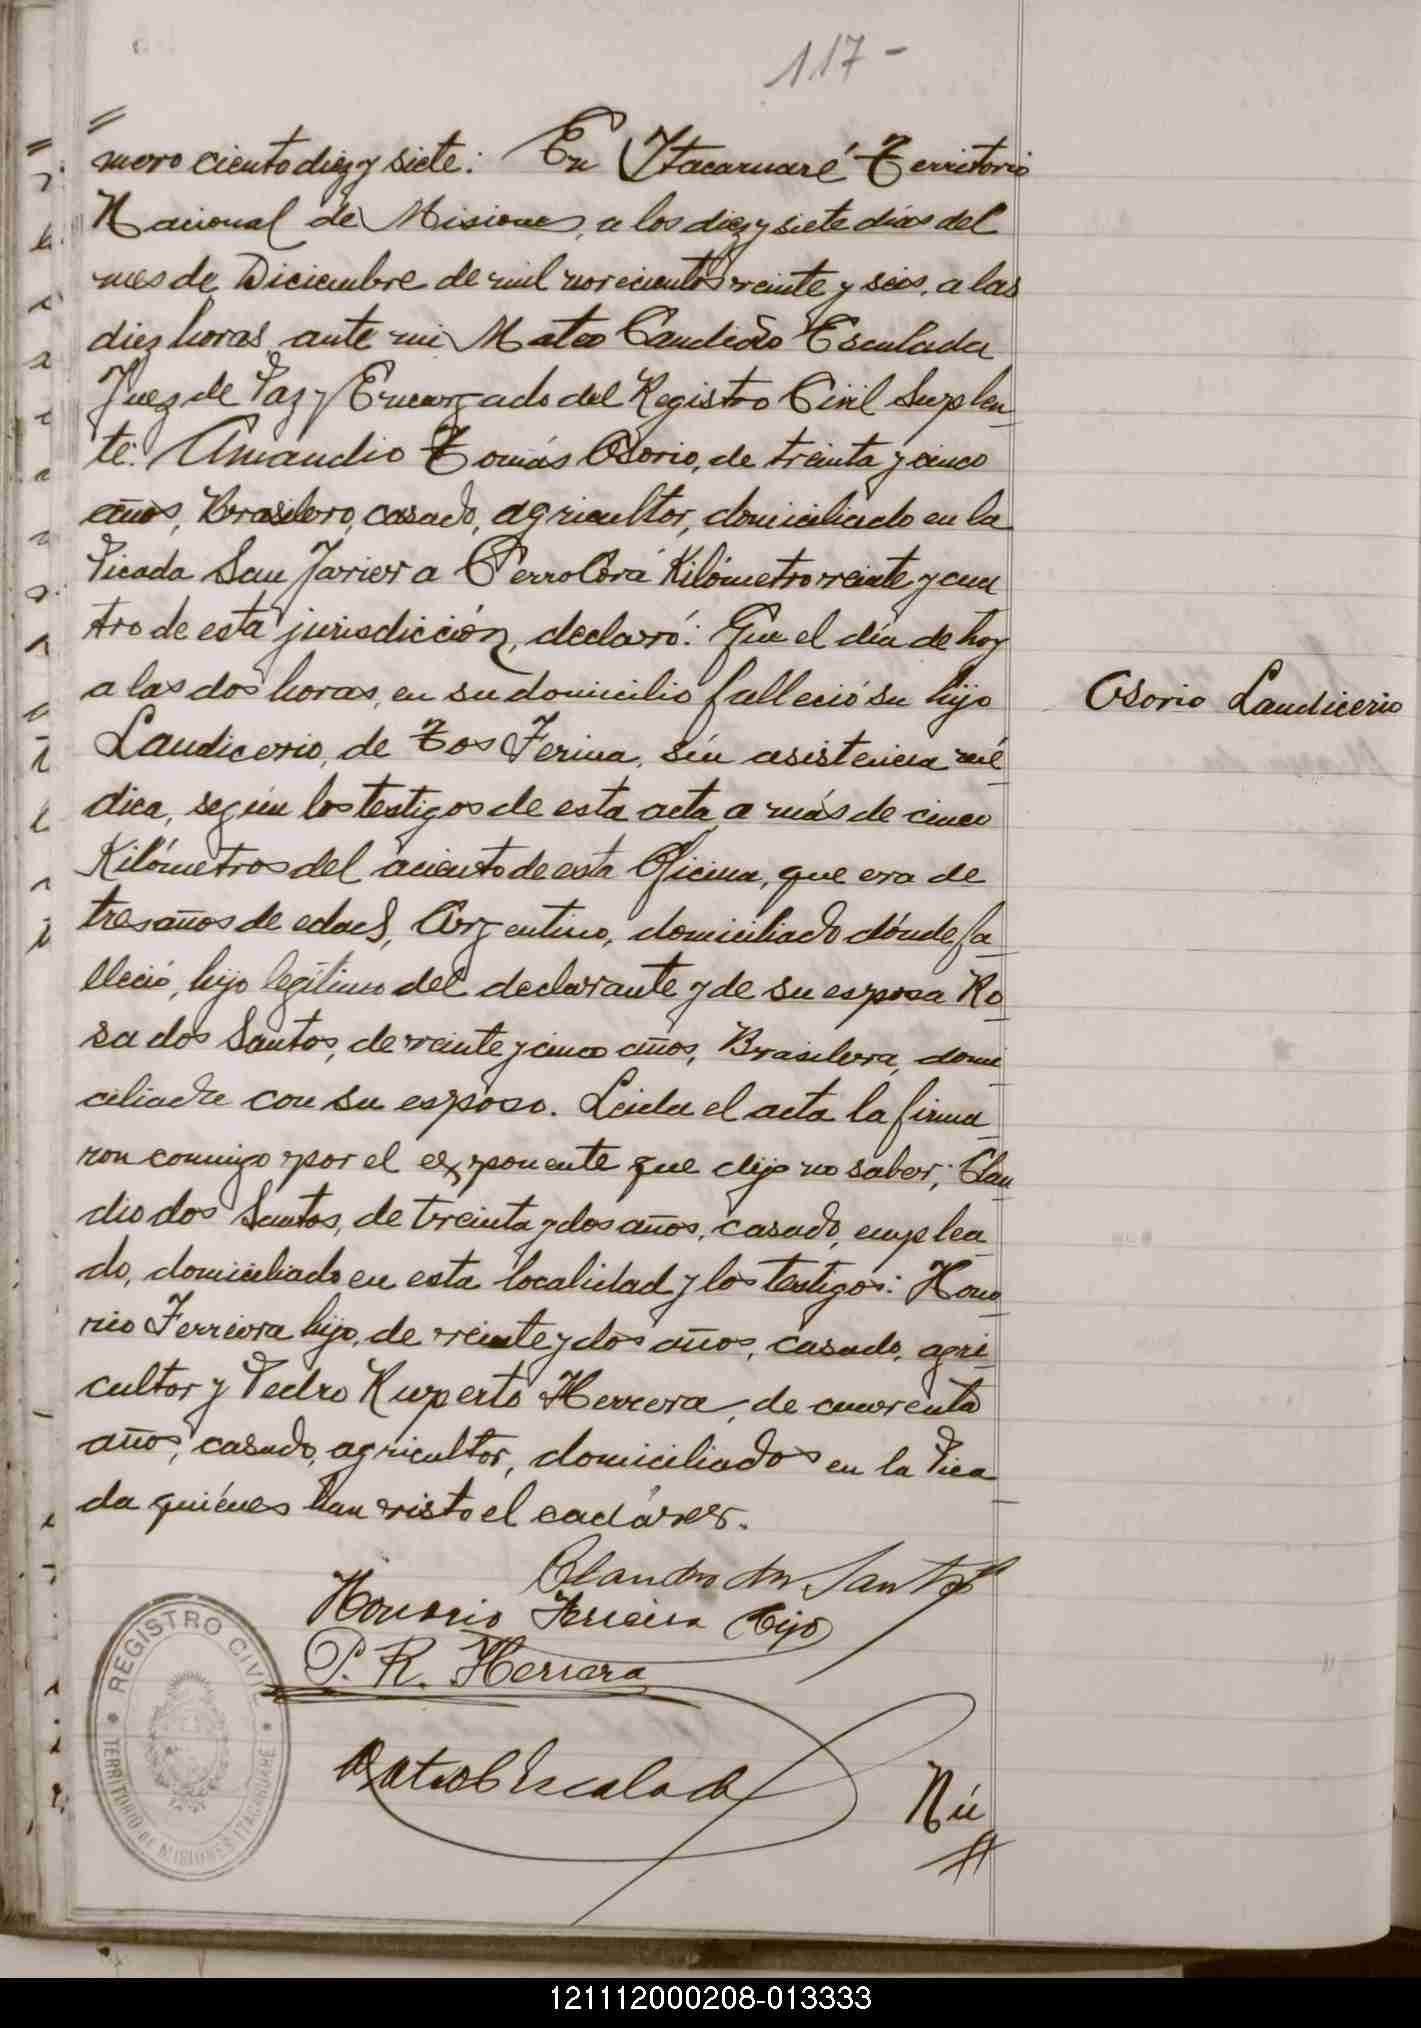 117-
mero ciento diez y siete: En Itacaruaré Territorio
Nacional de Misiones, a los diez y siete dias del
mes de Diciembre de mil novecientos veinte y seis, a las
diez horas, ante mi Mateo Candido Escalada
Juez de Paz y Encargado del Registro Civil Suplen-
te: Amandio Tomás Osorio, de treinta y cinco
años, Brasilero, casado, agricultor, domiciliado en la
Picada San Javier a Cerro Corá Kilómetro veinte y cua
tro de esta jurisdicción, declaró: Que el día de hoy
a las dos horas, en su domicilio falleció su hijo
Laudicerio, de Tos Ferina, sin asistencia mé-
dica, según los testigos de esta acta, a más de cinco
Kilómetros del aciento de esta Oficina, que era de
tres años de edad, Argentino, domiciliado dónde fa-
lleció, hijo legitimo del declarante y de su esposa Ro-
sa dos Santos, de veinte y cinco años, Brasilera, domi-
ciliada con su esposo. Leida el acta la firma-
ron conmigo por el exponente que dijo no saber; Clau
dio dos Santos, de treinta y dos años, casado, emplea-
do, domiciliado en esta localidad y los testigos: Hono-
rio Ferreira hijo, de veinte y dos años, casado, agri-
cultor y Pedro Ruperto Herrera, de cuarenta
años, casado, agricultor, domiciliados en la Pica-
da quiénes han visto el cadáver.
Osorio Laudicerio
Claudio dos Santos
Honorio Ferreira hijo
P. R. Herrera
Mateo C Escalada
Nú
REGISTRO CIVIL
TERRITORIO DE MISIONES ITACARUARE
121112000208-013333